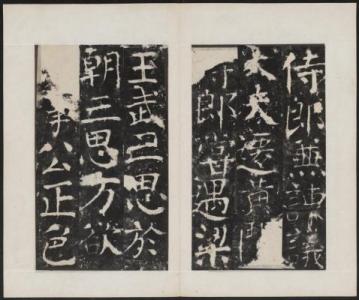 侍郎兼諫議
大夫遷黃門
侍郎當遇梁
王武三思於
朝三思方欲
事公正色